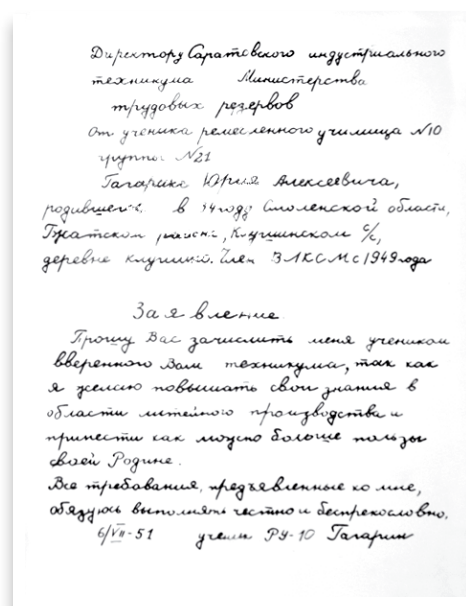 Директору Саратовского индустриального
техникума Министерства
трудовых резервов
от ученика ремесленного училища N10
группы N21
Гагарина Юрия Алексеевича,
родившегося в 34 году Смоленской области,
Гжатском районе, Клушинском с/с,
деревне Клушино. Член ВЛКСМ с 1949 года
Заявление
Прошу Вас зачислить меня учеником
вверенного Вам техникума, так как
я желаю повышать свои знания в
области литейного производства и
принести как можно больше пользы
своей Родине.
Все требования, предъявленные ко мне,
обязуюсь выполнять честно и беспрекословно.
6/VII-51 ученик РУ-10 Гагарин